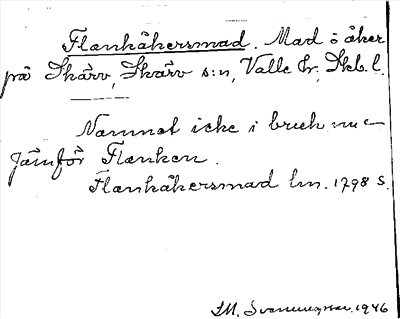 Flankåkersmad. Mad i åker
på Skärv, Skärv s:n, Valle hr, Skb. l.
Namnet icke i bruk nu
Jämför Flanken.
Flankåkersmad lm. 1798 S.
1946